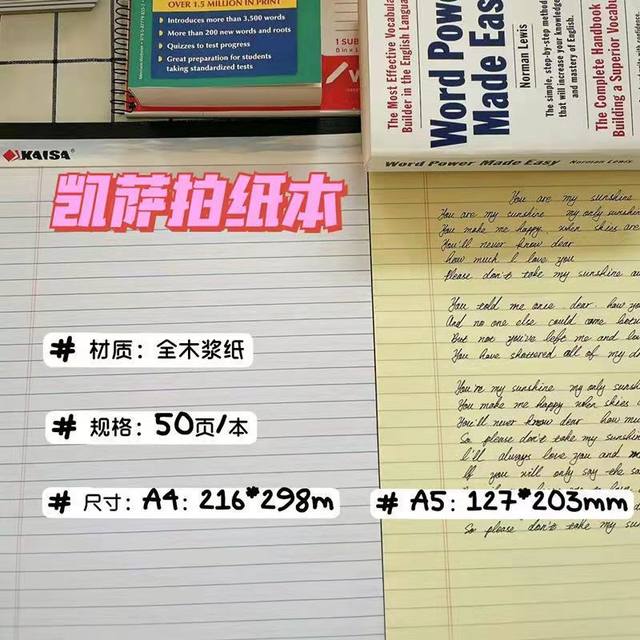 OVER 1.5 MILLION IN PRINT
Introduces more than 3,500 words
More than 200 new words and roots
Quizzes to test progress
Great preparation for students
taking standardized tests
1 SUB
The Most Effective Vocabulary
Builder in the English Language
Word Power
Made Easy
Norman Lewis
The simple, step-by-step method
that will increase your knowledge
and mastery of English.
The Complete Handbook
Building a Superior Vocabu
Word Power Made Easy Norman Lewis
KAISA®
凯萨拍纸本
# 材质：全木浆纸
# 规格：50页/本
# 尺寸：A4：216*298m
# A5：127*203mm
You are my sunshine
You are my sunshine my only sunshin
You make me happy when skies are
You'll never know dear
how much I love you
Please don't take my sunshine a
You told me once dear how yo
And no one else could come betw
But not you've left me and lo
You have shattered all of my d
You're my sunshine my only sunsh
You make me happy when skies
You'll never know dear how mu
So please don't take my sunshin
I'll always love you and m
If you will only say the sa
So please don't take my su